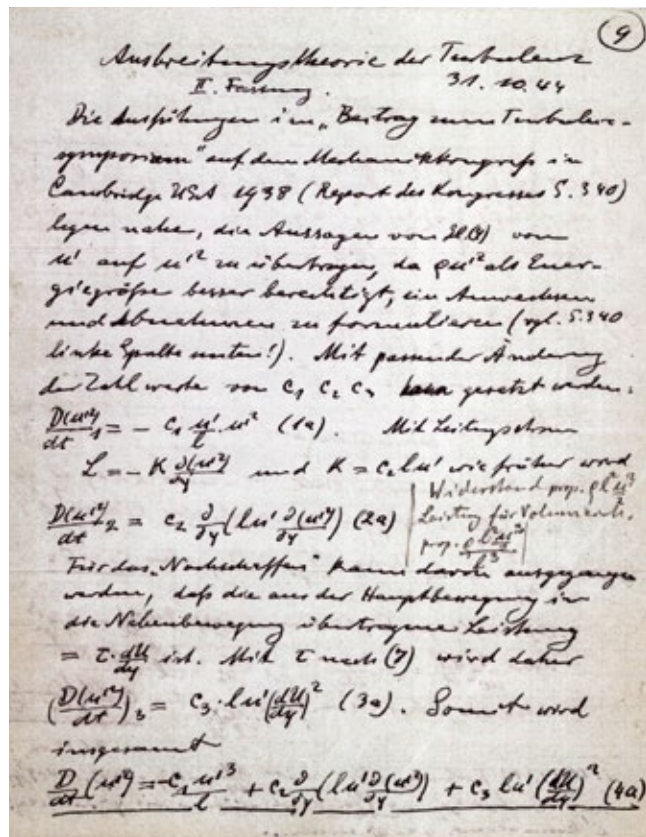 9
Ausbreitungstheorie der Turbulenz
II. Fassung. 31. 10. 44
Die Ausführungen im „Beitrag zum Turbulenz-
symposium" auf dem Mechanikkongreß in
Cambridge USA 1938 (Report des Kongresses S. 340)
legen nahe, die Aussagen von vom
u' auf u'² zu übertragen, da ϱu'² als Ener-
giegröße besser berechtigt, ein Anwachsen
und Abnehmen zu formulieren (vgl. S. 340
linke Spalte unten!). Mit passender Änderung
der Zahlwerte von c₁ c₂ c₃ gesetzt werden:
D(u'²)/dt ₁ = - c₁ u'/l · u'² (1a). Mit Leitungsstrom
L = - K ∂(u'²)/∂y und K = c₂ l u' wie früher wird
D(u'²)/dt ₂ = c₂ ∂/∂y (l u' ∂(u'²)/∂y) (2a)
Widerstand prop. ϱ l² u'²
Leistung für Volumeneinh.
prop. ϱ l² u'³/l³
Für das „Nachschaffen" kann davon ausgegangen
werden, daß die aus der Hauptbewegung in
die Nebenbewegung übertragene Leistung
= τ · dU/dy ist. Mit τ nach (7) wird daher
(D(u'²)/dt)₃ = c₃ · l u' (dU/dy)² (3a). Somit wird
insgesamt
D/dt (u'²) = - c₁ u'³/l + c₂ ∂/∂y (l u' ∂(u'²)/∂y) + c₃ l u' (dU/dy)² (4a)